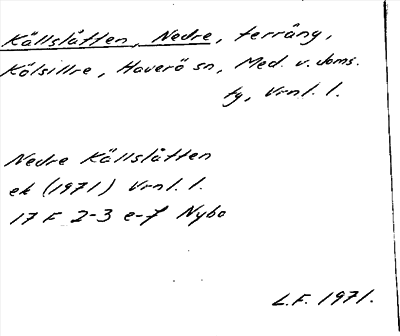 Källslåtten, Nedre, terräng,
Kölsillre, Haverö sn, Med. v. doms.
tg, Vrnl. l.
Nedre Källslåtten
ek (1971) Vrnl. l.
17 F 2-3 e-f Nybo
L.F. 1971.